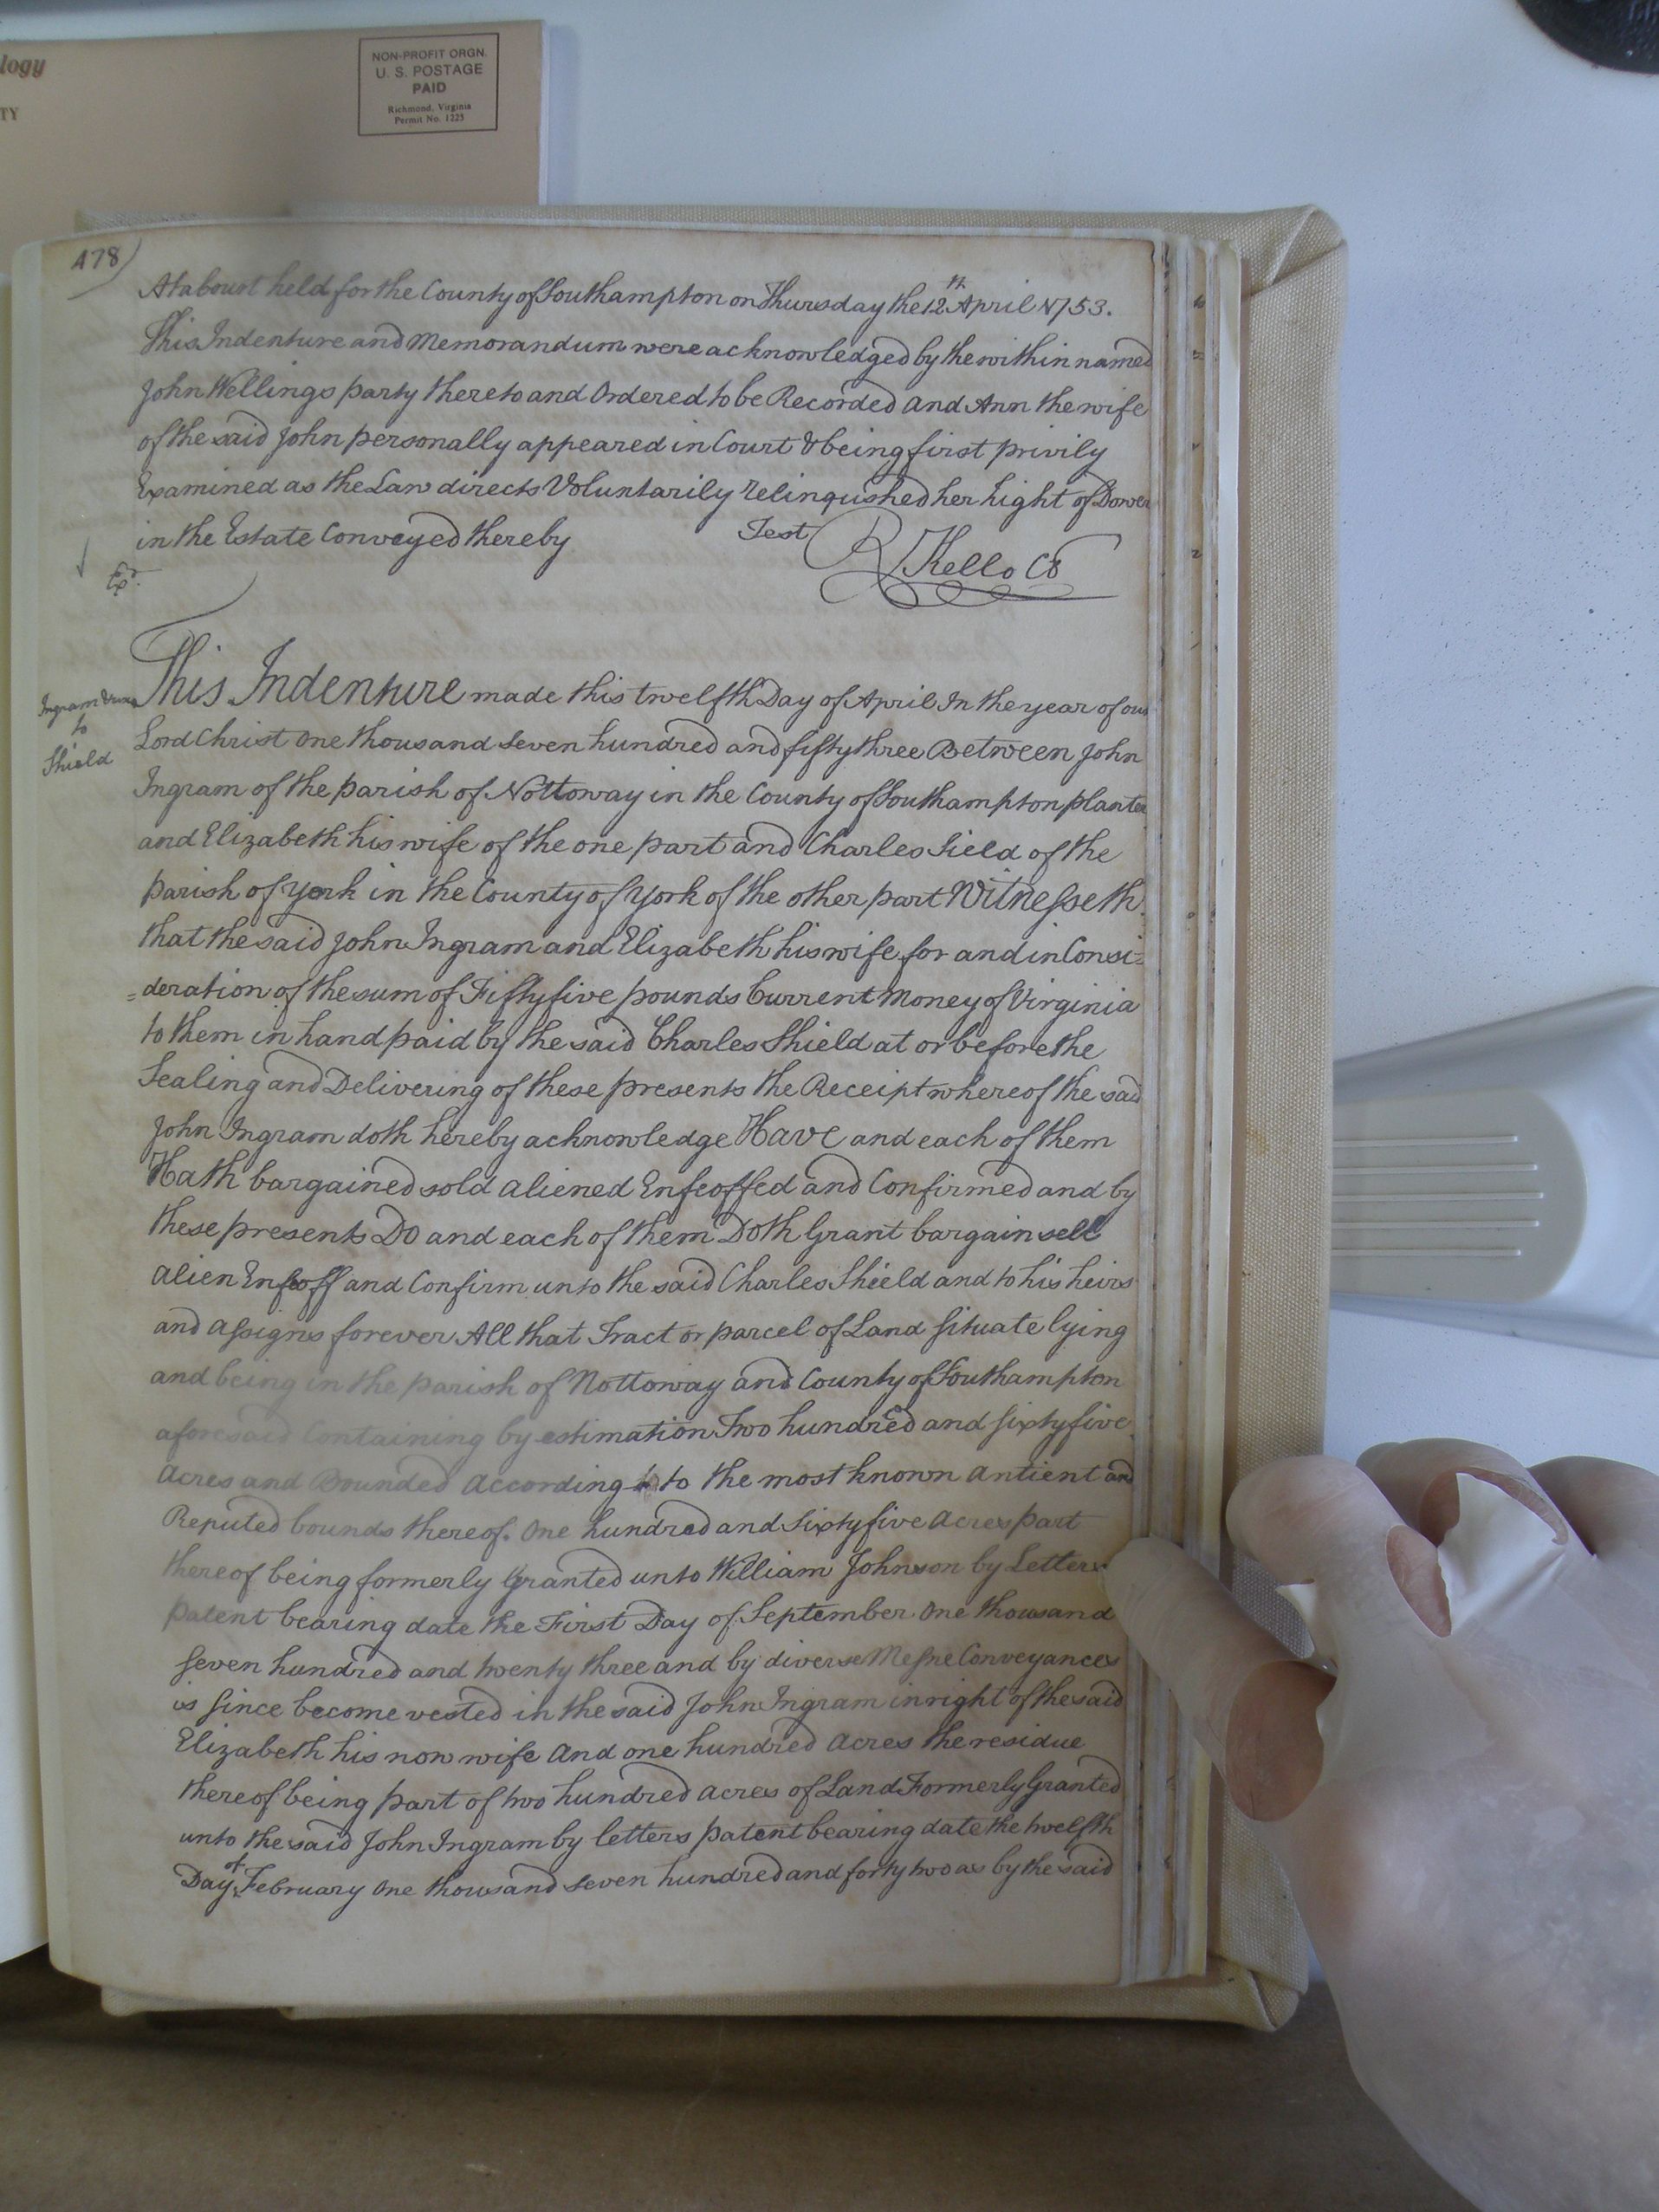 logy
TY
NON-PROFIT ORGN.
U. S. POSTAGE
PAID
Richmond, Virginia
Permit No. 1225
478)
At a Court held for the County of Southampton on Thursday the 12th April 1753.
This Indenture and Memorandum were acknowledged by the within named
John Wellings party thereto and Ordered to be Recorded and Ann the wife
of the said John personally appeared in Court & being first privily
Examined as the Law directs Voluntarily relinquished her hight of Dower
in the Estate Conveyed thereby Test
R Kello Cl
Exd.
Ingram &ux
to
Shield
This Indenture made this twelfth Day of April In the year of our
Lord Christ One thousand Seven hundred and fifty three Between John
Ingram of the parish of Nottoway in the County of Southampton planter
and Elizabeth his wife of the one part and Charles Sield of the
parish of York in the County of York of the other part Witnesseth
that the said John Ingram and Elizabeth his wife for and in Consi=
=deration of the sum of Fifty five pounds Current Money of Virginia
to them in hand paid by the said Charles Shield at or before the
Sealing and Delivering of these presents the Receipt whereof the said
John Ingram doth hereby acknowledge Have and each of them
Hath bargained sold aliened Enfeoffed and Confirmed and by
these presents Do and each of them Doth Grant bargain sell
alien Enfeoff and Confirm unto the said Charles Shield and to his heirs
and assigns forever All that Tract or parcel of Land Situate lying
and being in the parish of Nottoway and County of Southampton
aforesaid Containing by estimation Two hundred and sixty five
acres and Bounded according to the most known antient and
Reputed bounds thereof. One hundred and Sixty five acres part
thereof being formerly Granted unto William Johnson by Letters
patent bearing date the First Day of September One thousand
Seven hundred and twenty three and by diverse Mesne Conveyances
is since become vested in the said John Ingram in right of the said
Elizabeth his now wife and one hundred acres the residue
thereof being part of two hundred acres of Land Formerly Granted
unto the said John Ingram by letters patent bearing date the twelfth
Day of February One thousand seven hundred and forty two as by the said